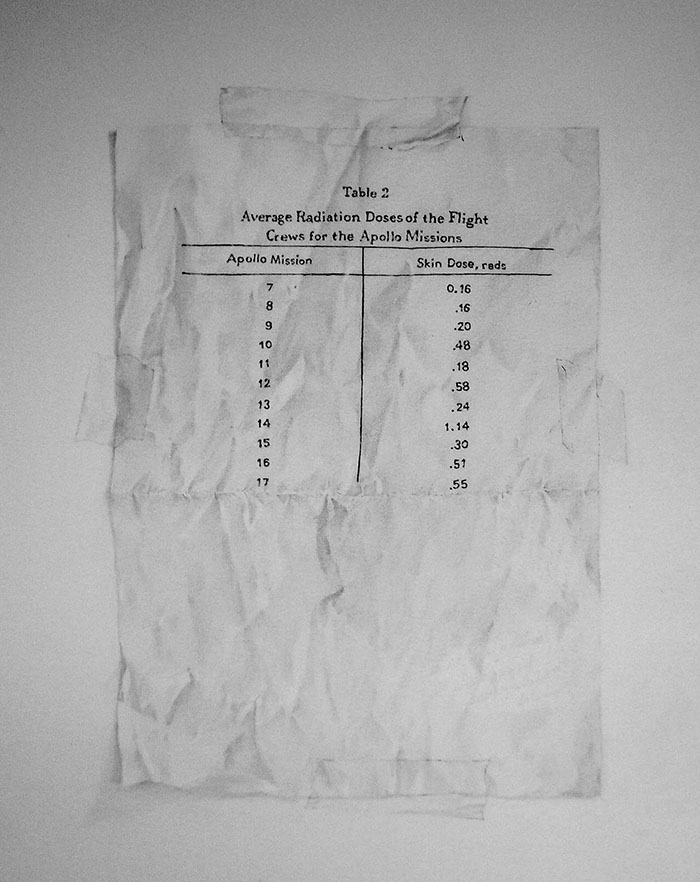 Table 2
Average Radiation Doses of the Flight
Crews for the Apollo Missions
Apollo Mission Skin Dose, rads
7 0.16
8 .16
9 .20
10 .48
11 .18
12 .58
13 .24
14 1.14
15 .30
16 .51
17 .55